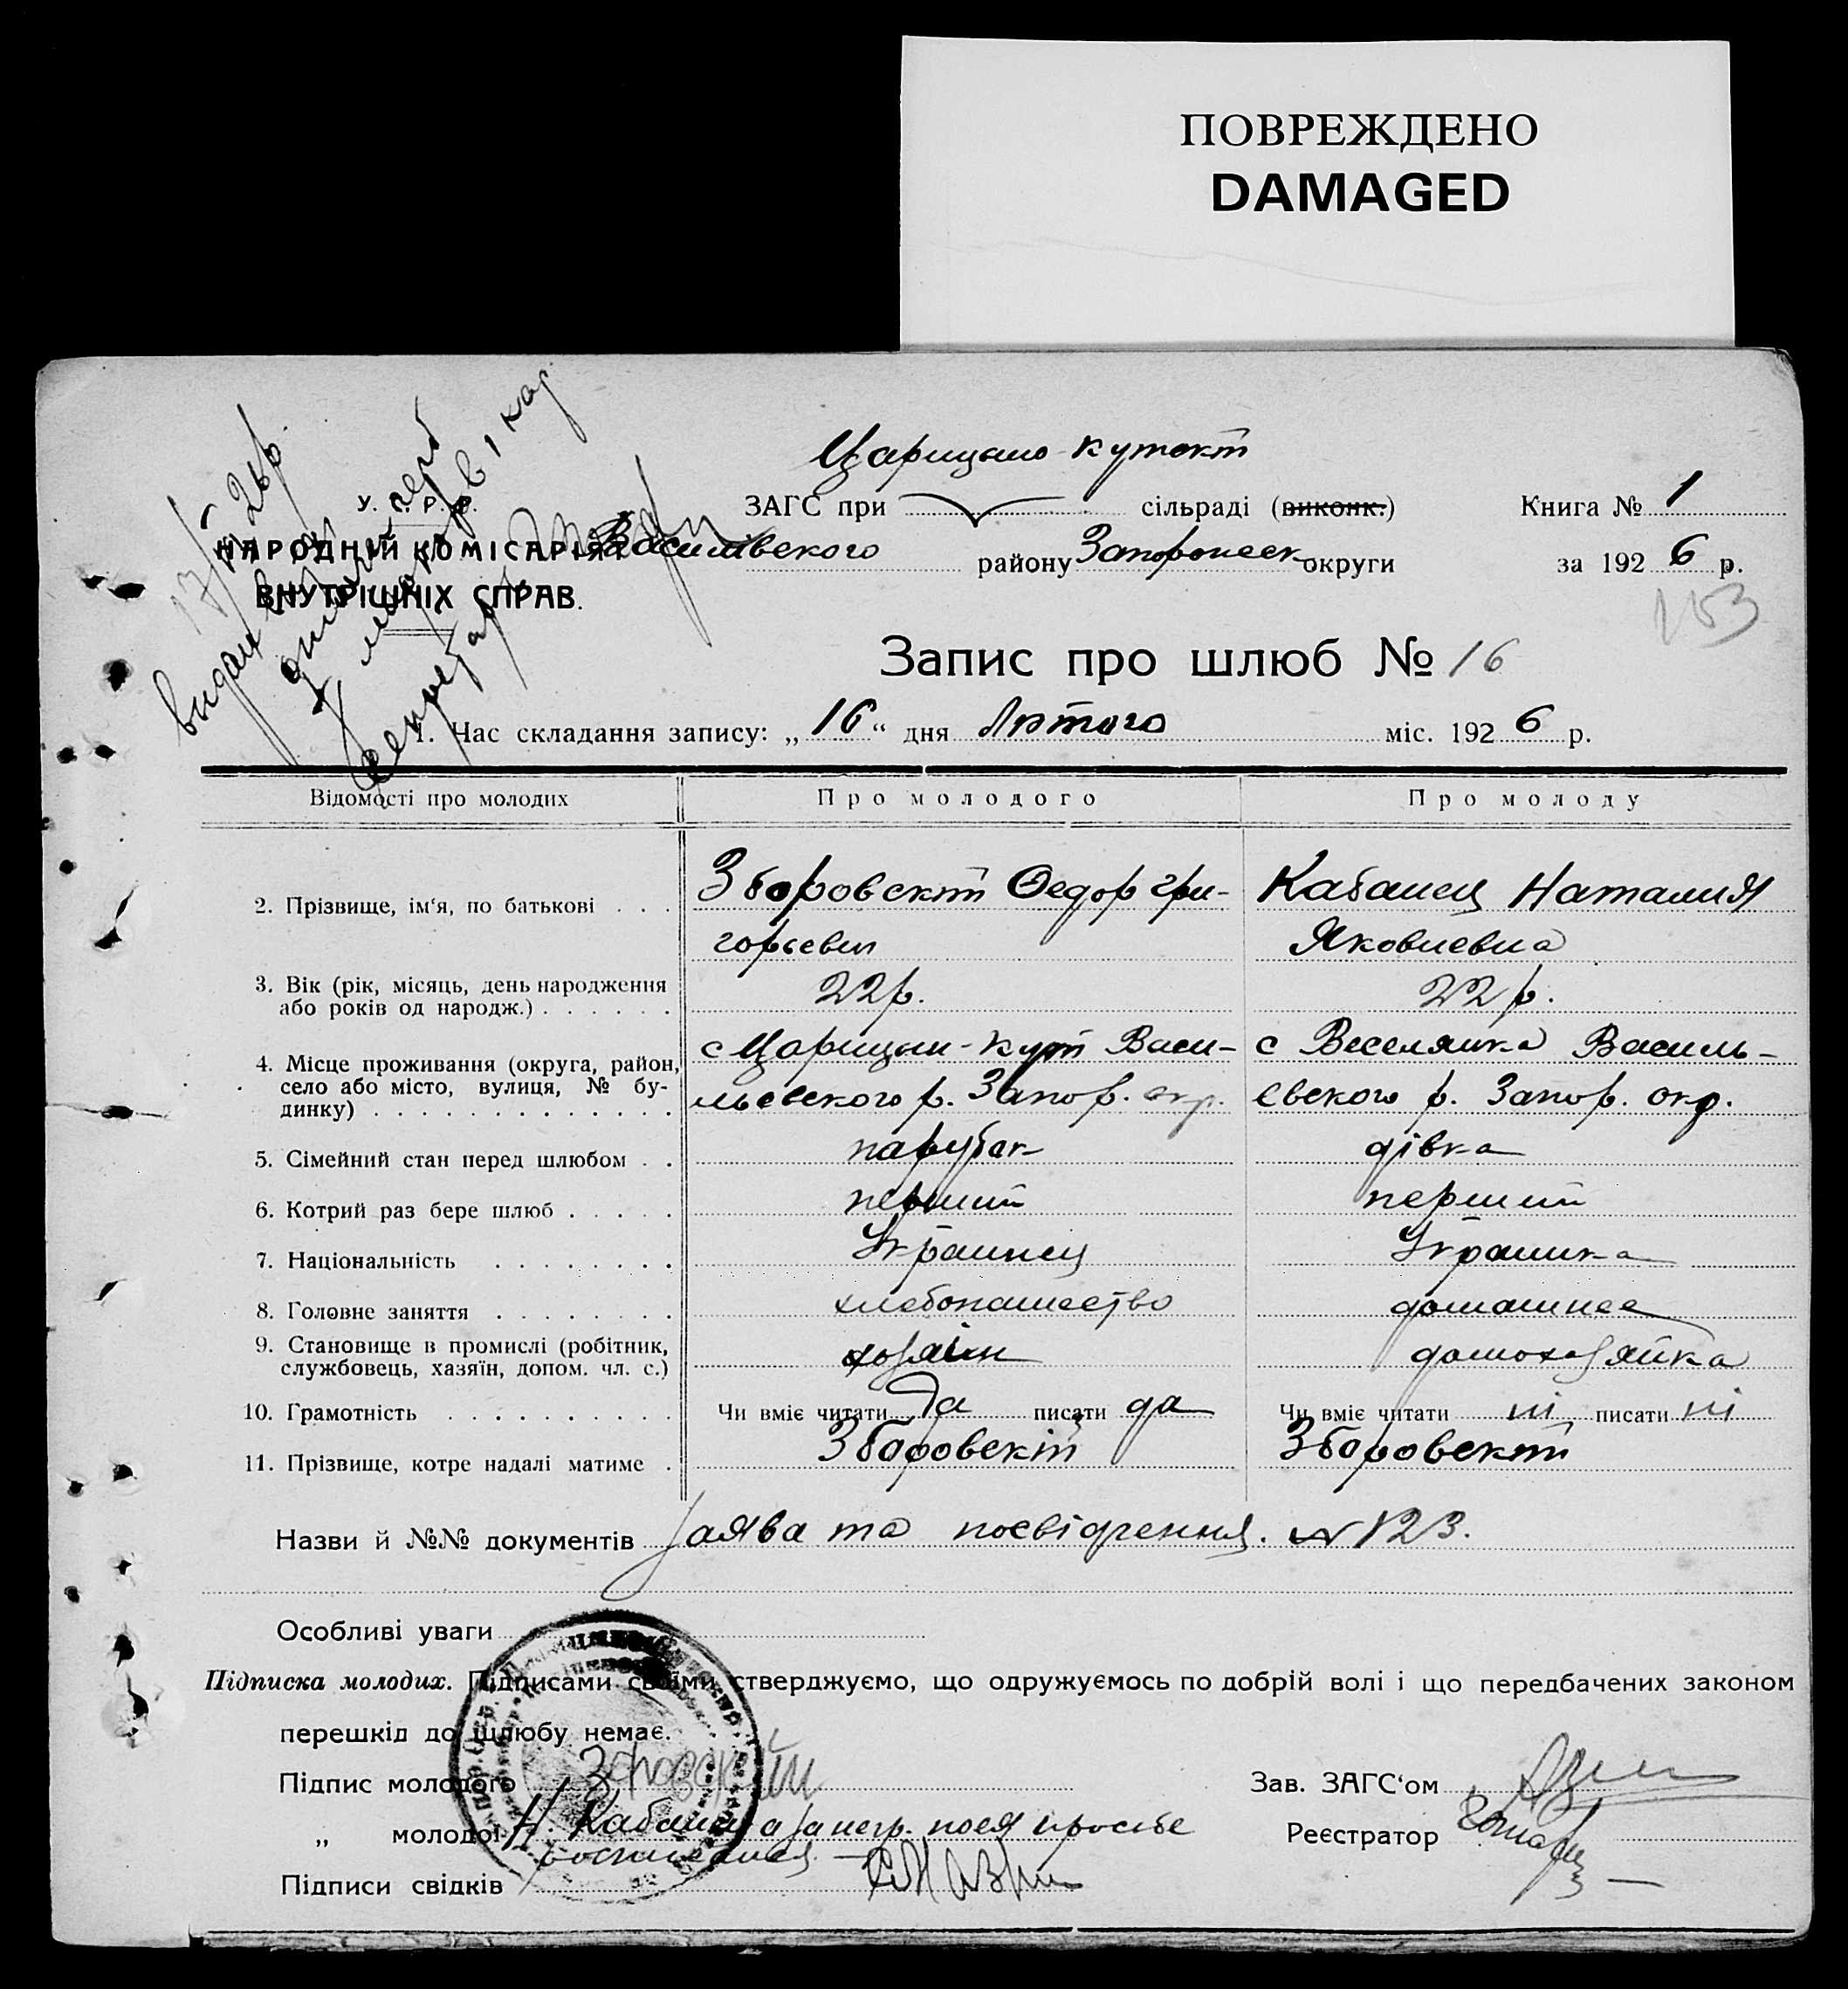 ПОВРЕЖДЕНО
DAMAGED
Царицыно-Кутскій
У. С. Р. Р.
ЗАГС при сільраді (виконк.) Книга № 1
НАРОДНІЙ КОМІСАРІЯТ
Василівского району Запорожск округи за 1926 р.
ВНУТРІШНІХ СПРАВ.
153
Запис про шлюб № 16
1. Час складання запису: „16“ дня Лютого міс. 1926 р.
Відомості про молодих Про молодого Про молоду
2. Прізвище, ім'я, по батькові Зборовскій Федор Гри-
горьевич
Кабанец Наталия
Яковлевна
3. Вік (рік, місяць, день народження
або років од народж.) 22 р. 22 р.
4. Місце проживання (округа, район,
село або місто, вулиця, № бу-
динку)
с Царицын-Кут Васи-
льевского р. Запор. окр.
с Веселянка Василь-
євского р. Запор. окр.
5. Сімейний стан перед шлюбом парубак дівка
6. Котрий раз бере шлюб перший перший
7. Національність Украинец Украинка
8. Головне заняття хлебопашество домашнее
9. Становище в промислі (робітник,
службовець, хазяїн, допом. чл. с.) хозяин домохозяйка
10. Грамотність Чи вміє читати да писати да Чи вміє читати ні писати ні
11. Прізвище, котре надалі матиме Зборовскій Зборовскій
Назви й №№ документів Заява та посвідчення. № 123.
Особливі уваги
Підписка молодих. Підписами своїми стверджуємо, що одружуємось по добрій волі і що передбачених законом
перешкід до шлюбу немає.
Підпис молодого Зборовский Зав. ЗАГС'ом
„ молодої Н. Кабанец а за негр. поея просьбе
росписался
Реєстратор
Підписи свідків